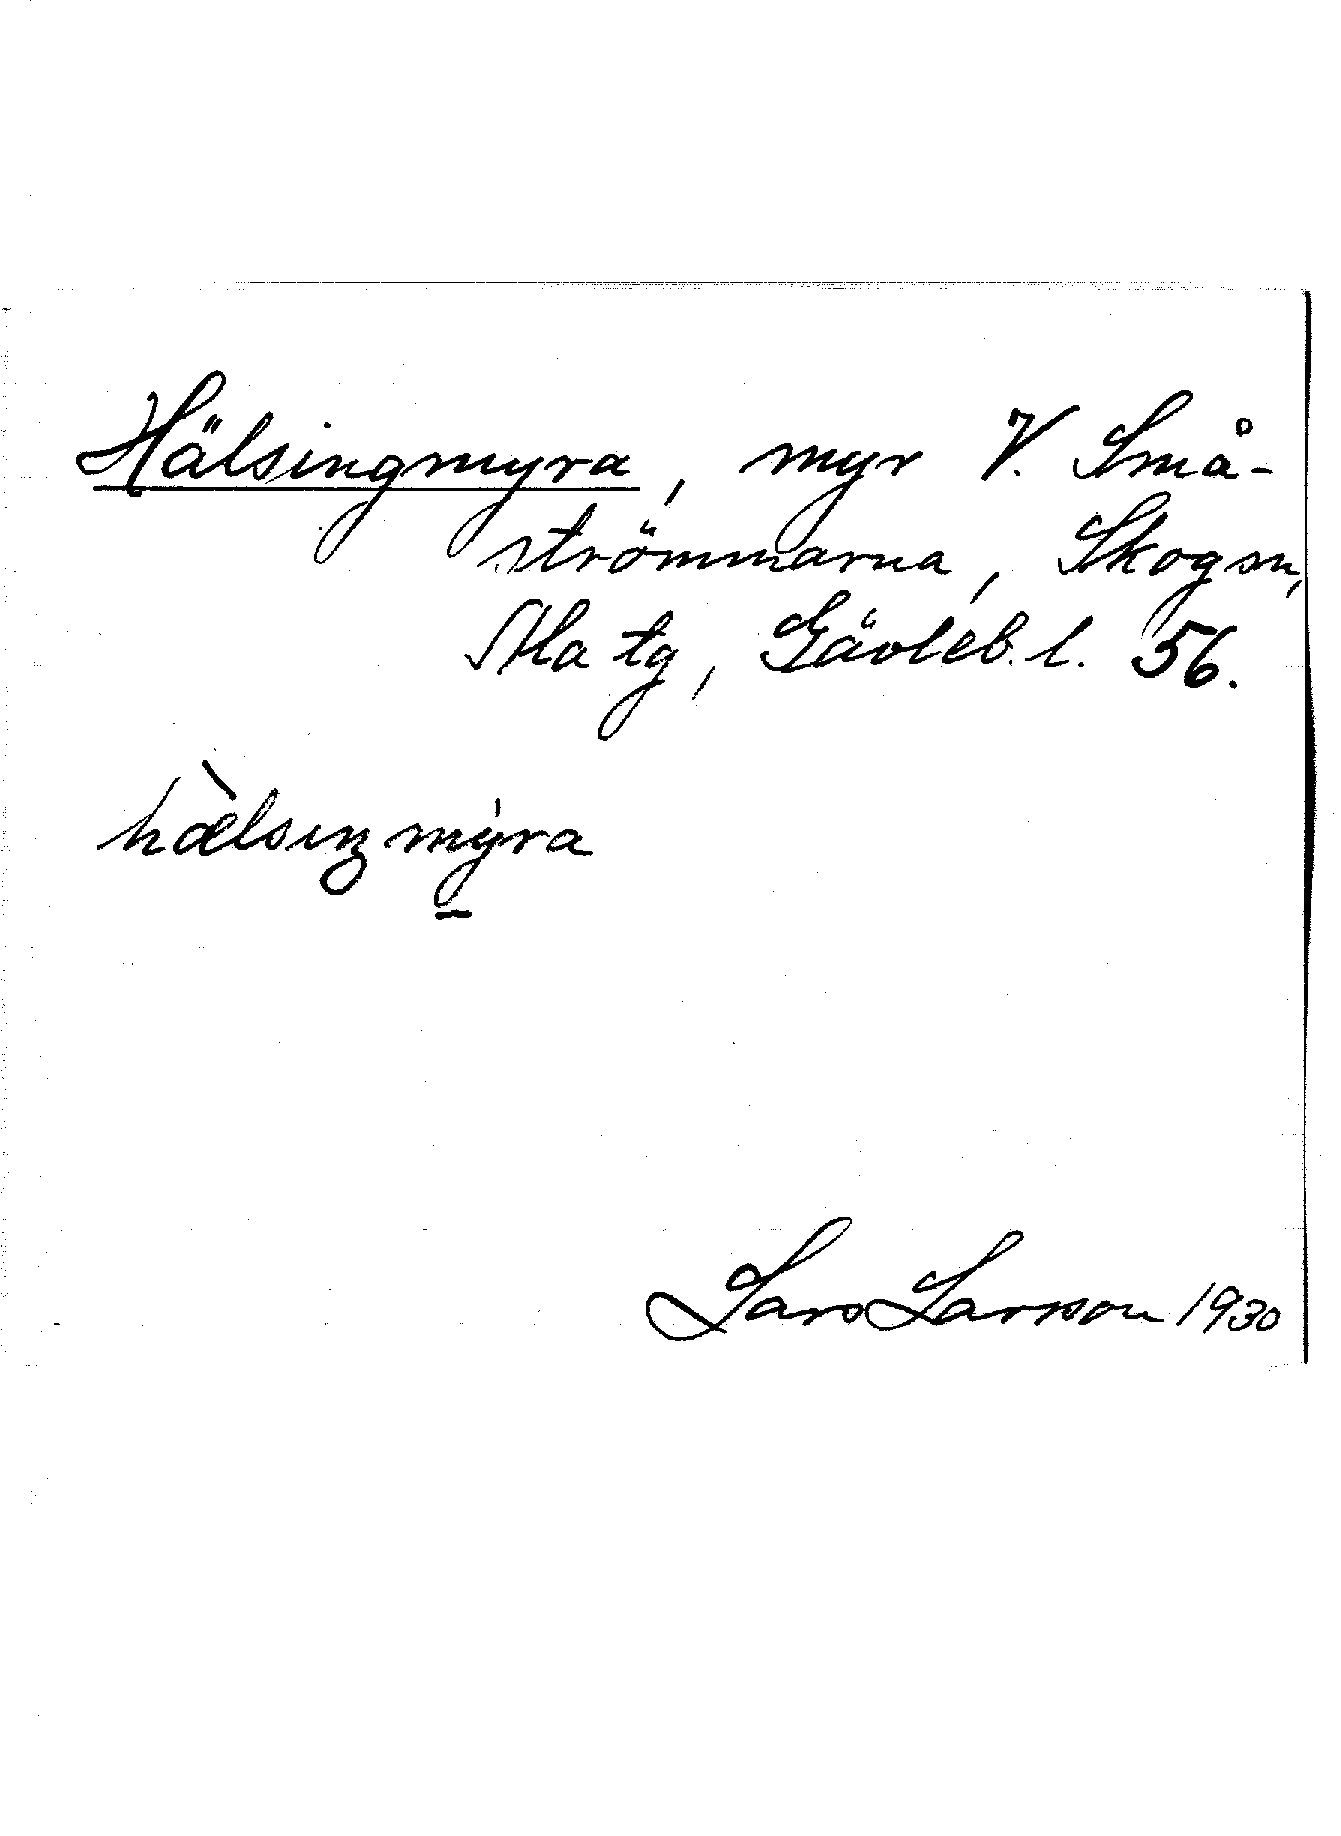 Hälsingmyra, myr V. Små-
strömmarna, Skogsn,
Ala tg, Gävleb. l. 56.
hæ̀lsıŋmy̍ra
Lars Larsson 1930